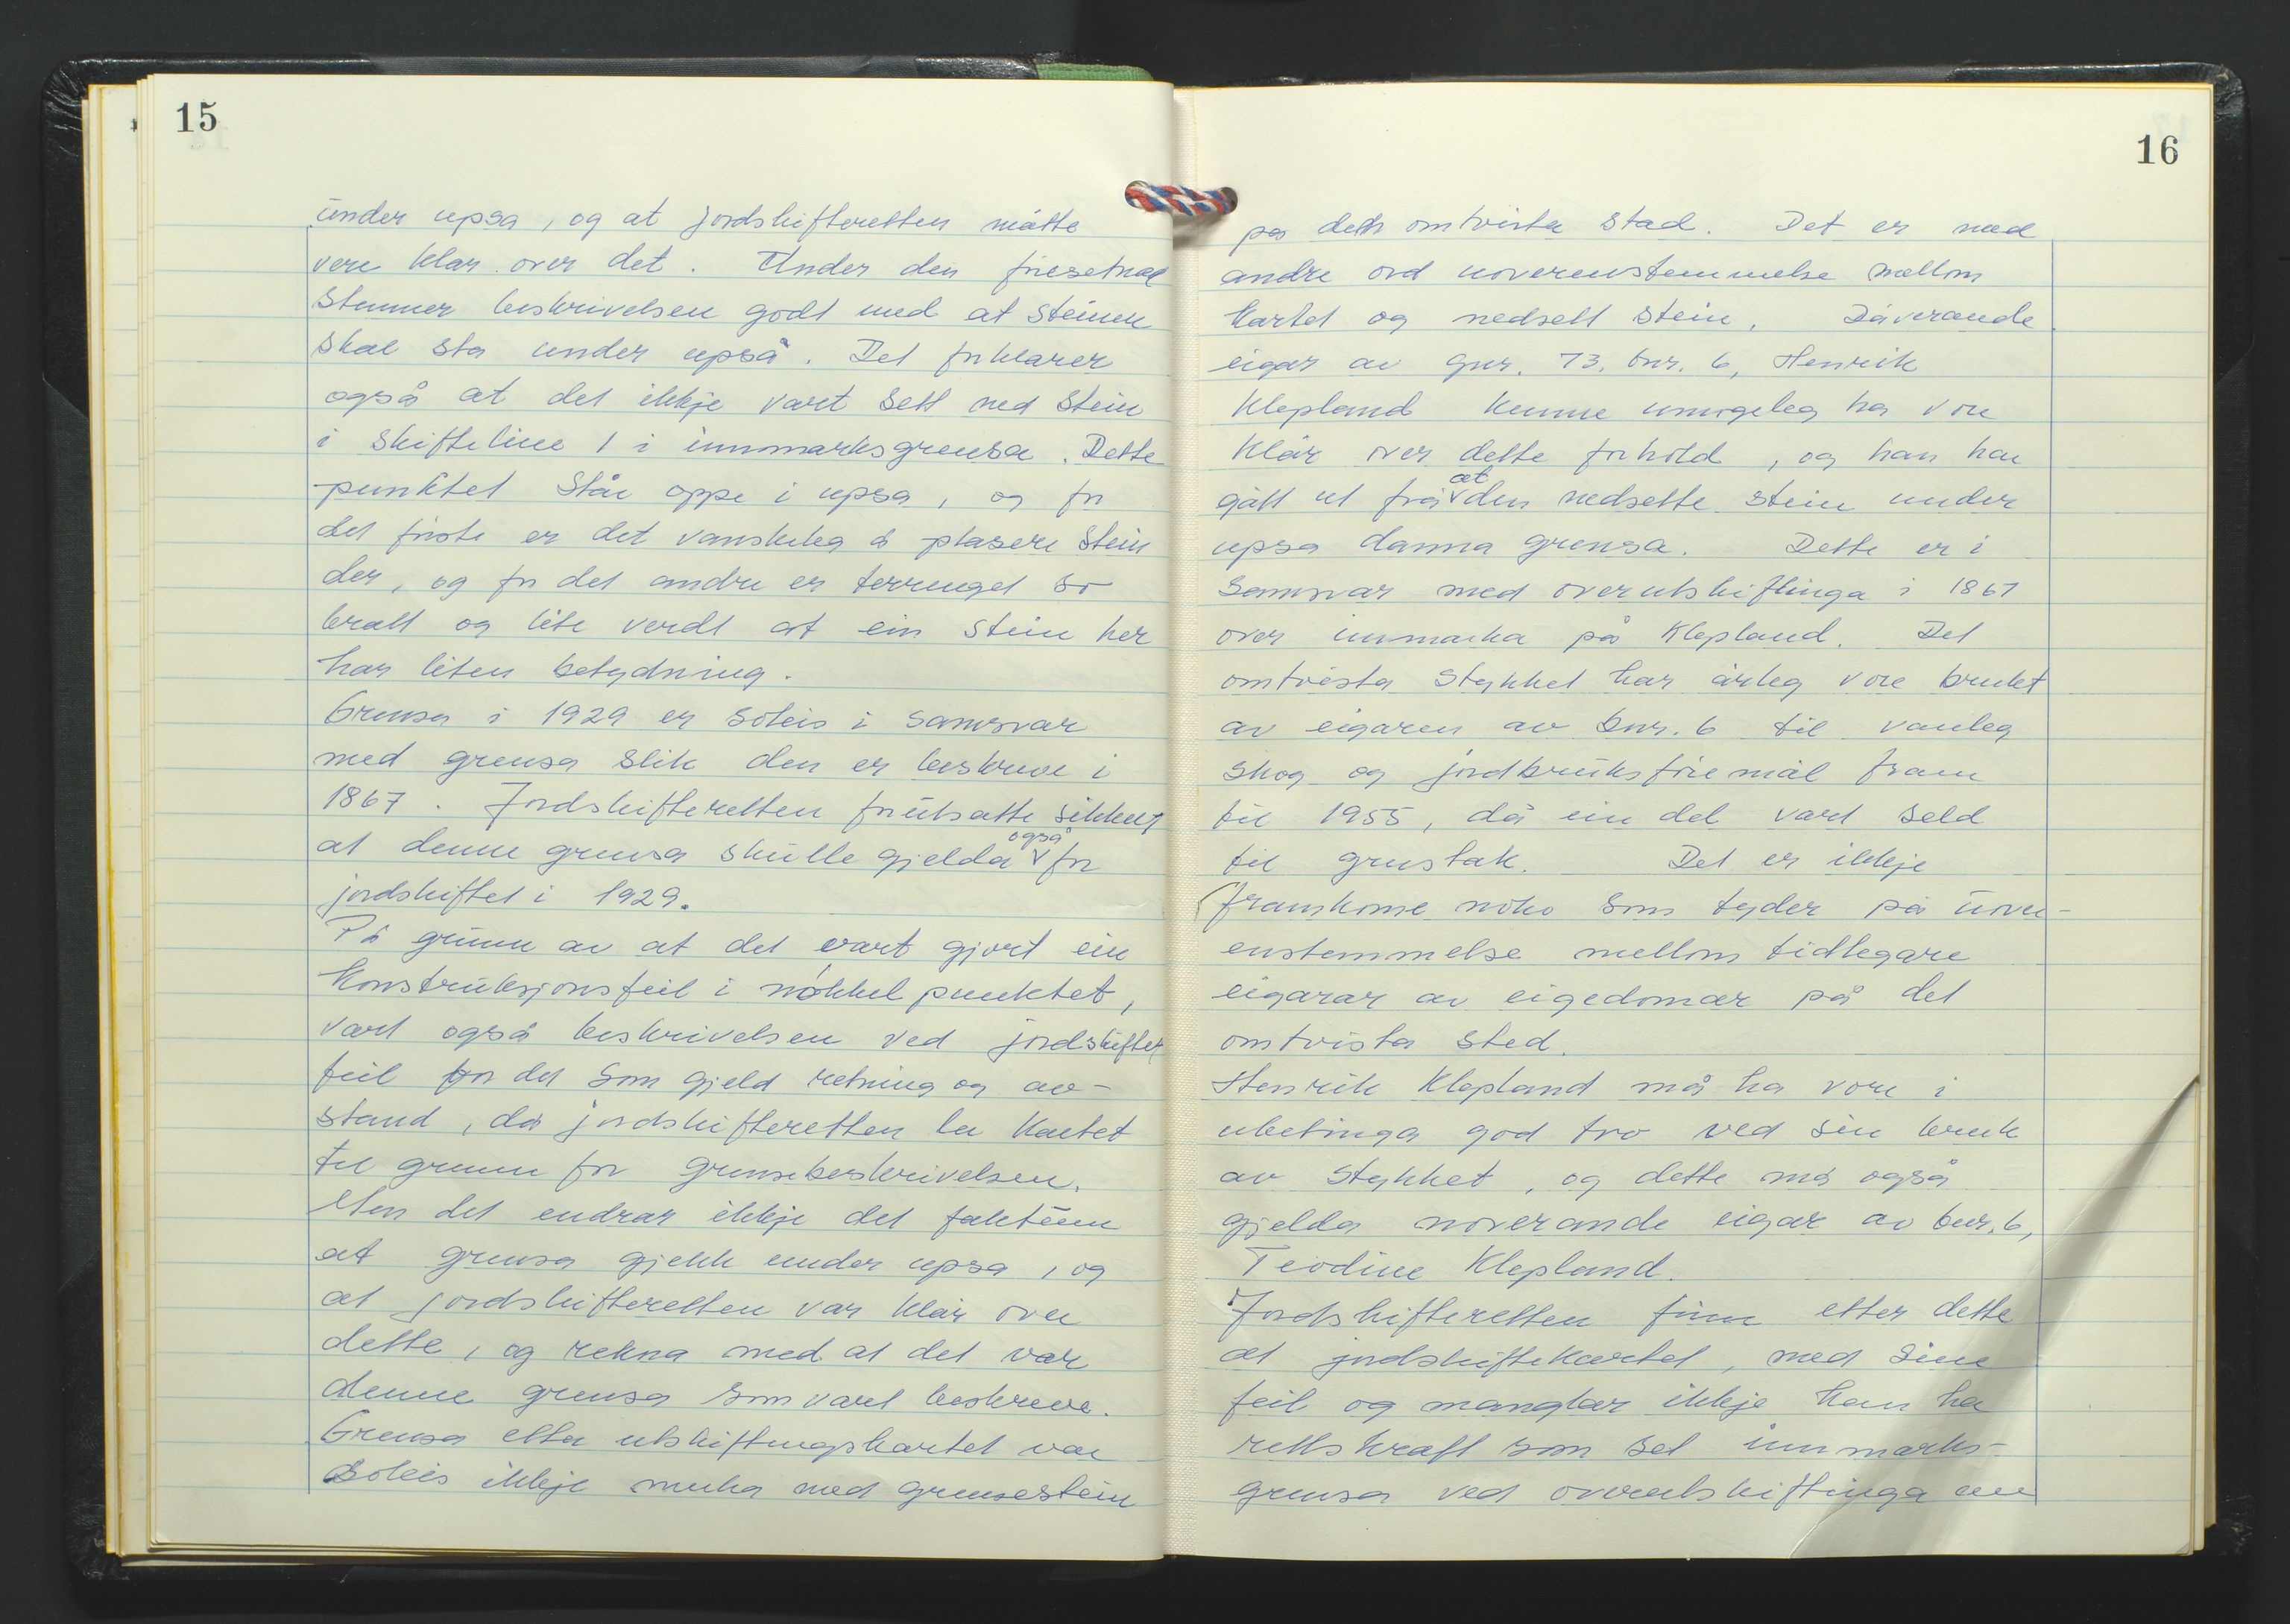 15
under upsa, og at jordskifteretten måtte
vere klar over det. Under den føresetnad
stemmer beskrivelsen godt med at steinen
skal sta under upså. Det forklarer
også at det ikkje vart sett ned stein
i skifteline 1 i innmarksgrensa. Dette
punktet står oppe i upsa, og for
det første er det vanskeleg å plasere stein
der, og for det andre er terrenget so
bratt og lite verdt at ein stein her
har liten betydning.
Grensa i 1929 er soleis i samsvar
med grensa slik den er beskreve i
1867. Jordskifteretten forutsatte sikkert
at denne grensa skulle gjelda også for
jordskiftet i 1929.
På grunn av at det vart gjort ein
konstruksjonsfeil i nøkkelpunktet,
vart også beskrivelsen ved jordskiftet
feil for det som gjeld retning og av-
stand, då jordskifteretten la kartet
til grunn for grensebeskrivelsen.
Men det endrar ikkje det faktum
at grensa gjekk under upsa, og
at jordskifteretten var klår over
dette, og rekna med at det var
denne grensa som vart beskreve.
Grensa etter utskiftingskartet var
soleis ikkje merka med grensestein
16
på det omtvista stad. Det er med
andre ord uoverenstemmelse mellom
kartet og nedsett stein. Dåverande
eigar av gnr. 73, bnr. 6, Henrik
Klepland kunne umogeleg ha vore
klår over dette forhold, og han har
gått ut frå at den nedsette stein under
upsa danna grensa. Dette er i
samsvar med overutskiftinga i 1867
over innmarka på Klepland. Det
omtvista stykket har årleg vore brukt
av eigaren av bnr. 6 til vanleg
skog og jordbruksføremål fram
til 1955, då ein del vart seld
til grustak. Det er ikkje
framkome noko som tyder på uover-
enstemmelse mellom tidlegare
eigarar av eigedomar på det
omtvista sted.
Henrik Klepland må ha vore i
ubetinga god tro ved sin bruk
av stykket, og dette må også
gjelda noverande eigar av bnr. 6,
Teodine Klepland.
Jordskifteretten finn etter dette
at jordskiftekartet, med sine
feil og manglar ikkje kan ha
rettskraft som set innmarks-
grensa ved overutskiftinga